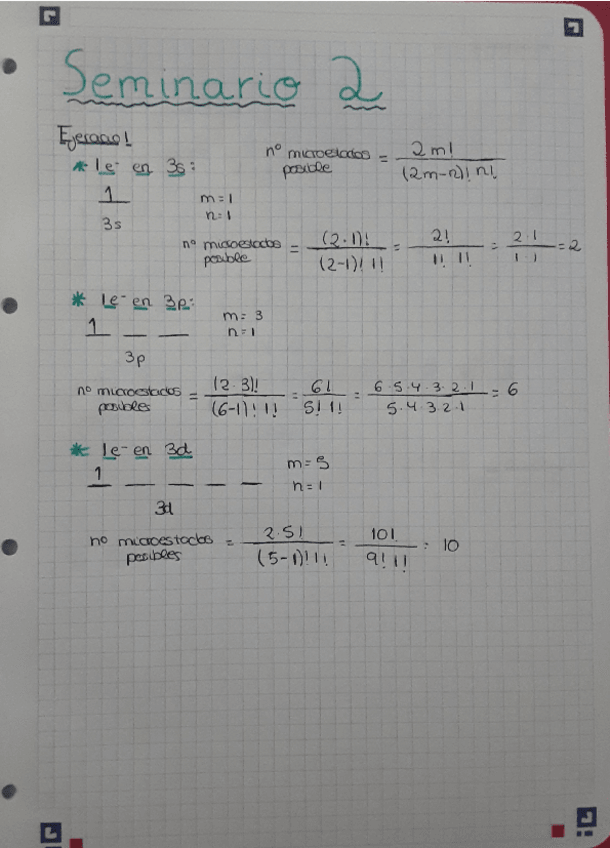 Seminario 2
Ejercicio 1
* 1e⁻ en 3s:
nº microestados posible = 2m! / (2m-n)! n!
1
3s
m = 1
n = 1
nº microestados posible = (2·1)! / (2-1)! 1! = 2! / 1! 1! = 2·1 / 1·1 = 2
* 1e⁻ en 3p:
1 _ _
3p
m = 3
n = 1
nº microestados posibles = (2·3)! / (6-1)! 1! = 6! / 5! 1! = 6·5·4·3·2·1 / 5·4·3·2·1 = 6
* 1e⁻ en 3d
1 _ _ _ _
3d
m = 5
n = 1
nº microestados posibles = 2·5! / (5-1)! 1! = 10! / 9! 1! = 10